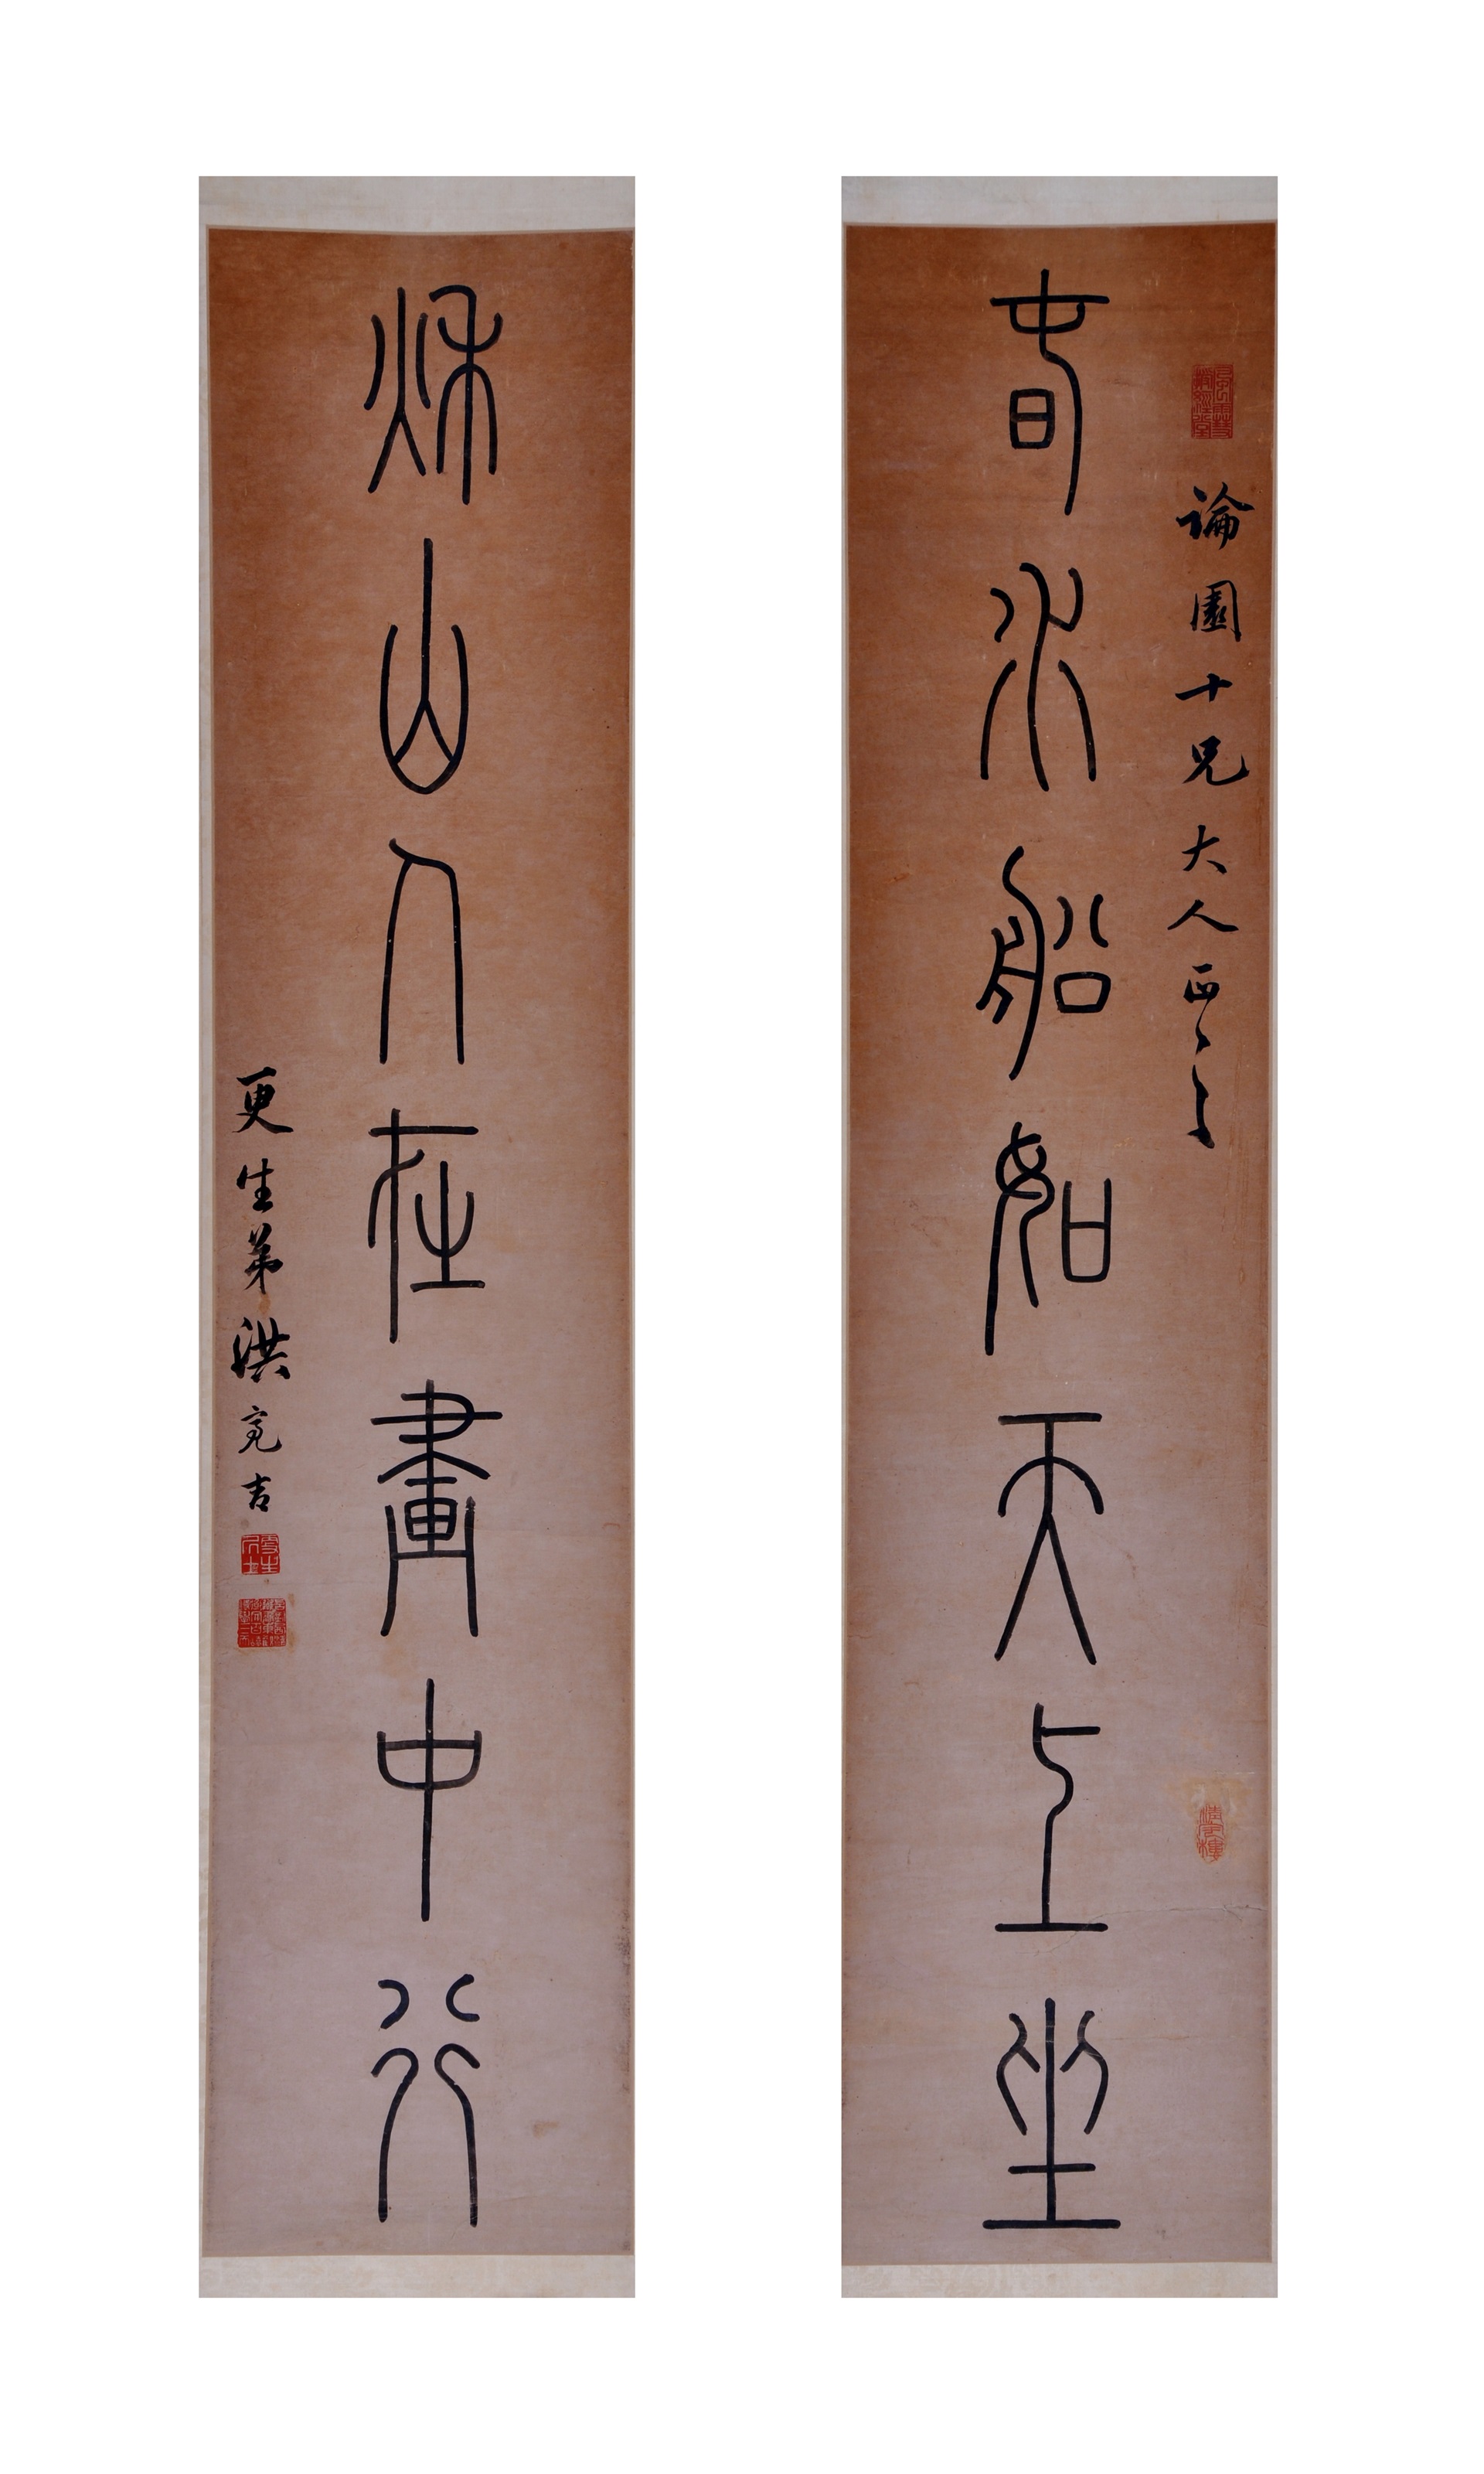 春水船如天上坐
論園十兄大人正之
秌山人在畫中行
更生弟洪亮吉
更生居士